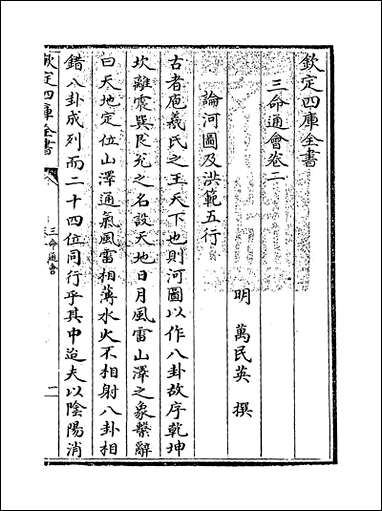 欽定四庫全書
三命通會卷二
明 萬民英 撰
論河圖及洪範五行
古者庖羲氏之王天下也則河圖以作八卦故序乾坤
坎離震巽艮兑之名設天地日月風雷山澤之象繫辭
曰天地定位山澤通氣風雷相薄水火不相射八卦相
錯八卦成列而二十四位同行乎其中迨夫以陰陽消
欽定四庫全書
三命通會